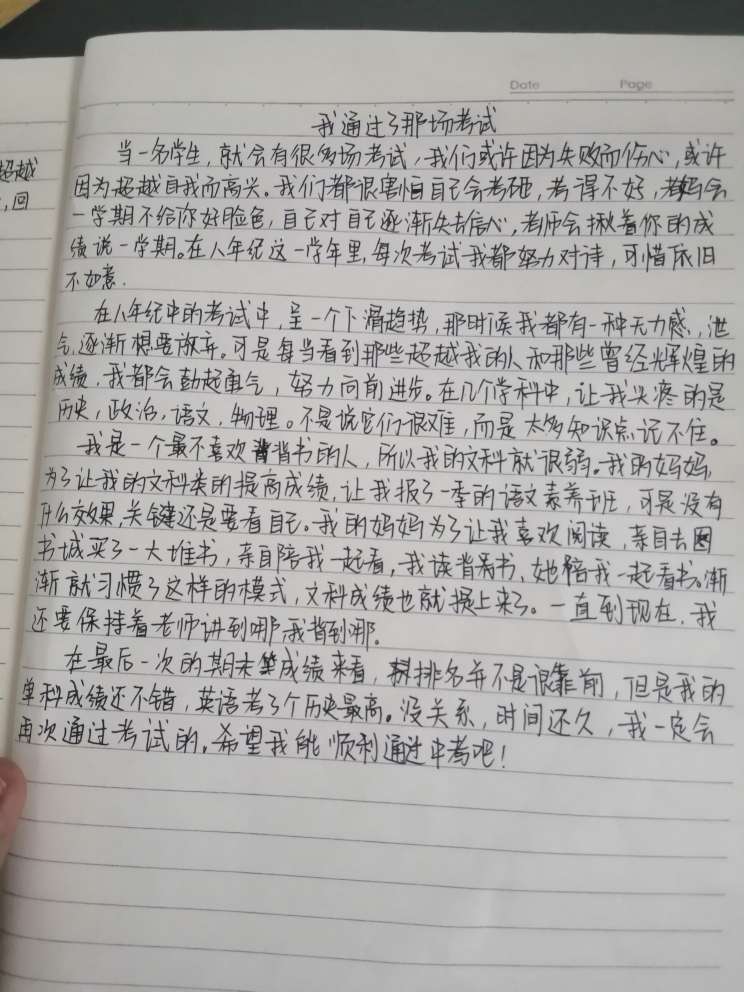 超越
,回
Date Page
我通过了那场考试
当一名学生,就会有很多场考试,我们或许因为失败而伤心,或许
因为超越自我而高兴。我们都很害怕自己会考砸,考得不好,老妈会
一学期不给你好脸色,自己对自己逐渐失去信心,老师会揪着你的成
绩说一学期。在八年纪这一学年里,每次考试我都努力对诗,可惜依旧
不如意.
在八年纪中的考试中,呈一个下滑趋势,那时候我都有一种无力感,泄
气,逐渐想要放弃。可是每当看到那些超越我的人和那些曾经辉煌的
成绩,我都会鼓起勇气,努力向前进步。在几个学科中,让我头疼的是
历史,政治,语文,物理。不是说它们很难,而是太多知识点记不住。
我是一个最不喜欢背书的人,所以我的文科就很弱。我的妈妈,
为了让我的文科类的提高成绩,让我报了一季的语文素养班,可是没有
什么效果,关键还是要看自己。我的妈妈为了让我喜欢阅读,亲自去图
书城买了一大堆书,亲自陪我一起看,我读背看书,她陪我一起看书。渐
渐就习惯了这样的模式,文科成绩也就提上来了。一直到现在,我
还要保持着老师讲到哪我背到哪.
在最后一次的期末成绩来看,排名并不是很靠前,但是我的
单科成绩还不错,英语考了个历史最高。没关系,时间还久,我一定会
再次通过考试的。希望我能顺利通过中考吧!